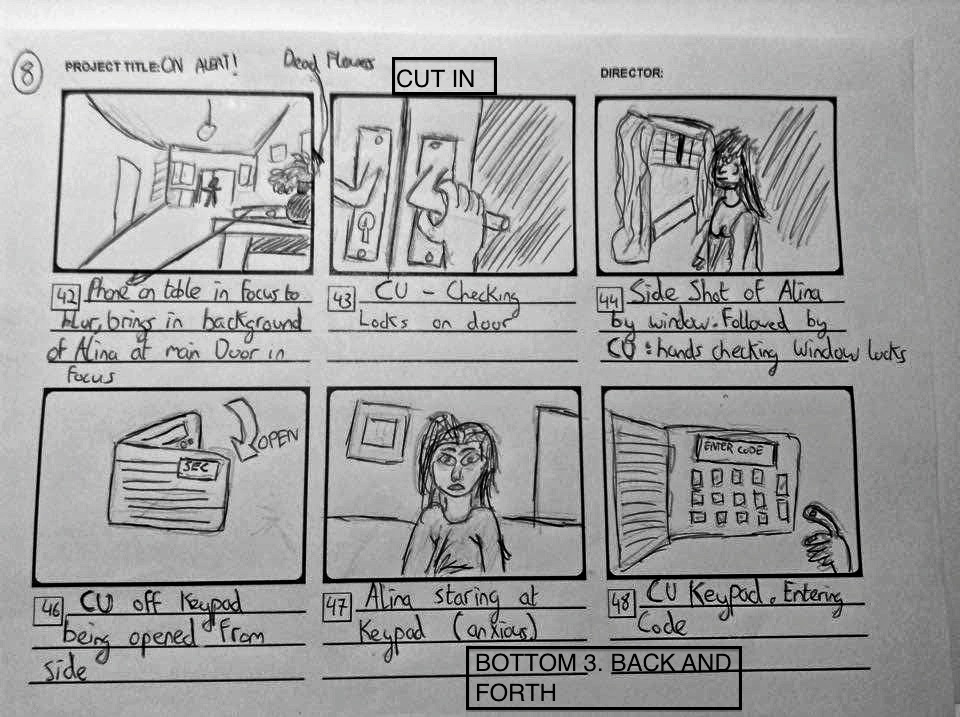 8
PROJECT TITLE: ON ALERT!
Dead Flower
CUT IN
DIRECTOR:
42 Phone on table in focus to
blur, brings in background
of Alina at main Door in
focus
43 CU - Checking
Locks on door
44 Side Shot of Alina
by window. Followed by
CU: hands checking window locks
OPEN
SEC
ENTER CODE
46 CU off Keypad
being opened From
Side
47 Alina staring at
Keypad (anxious)
48 CU Keypad. Entering
Code
BOTTOM 3. BACK AND
FORTH